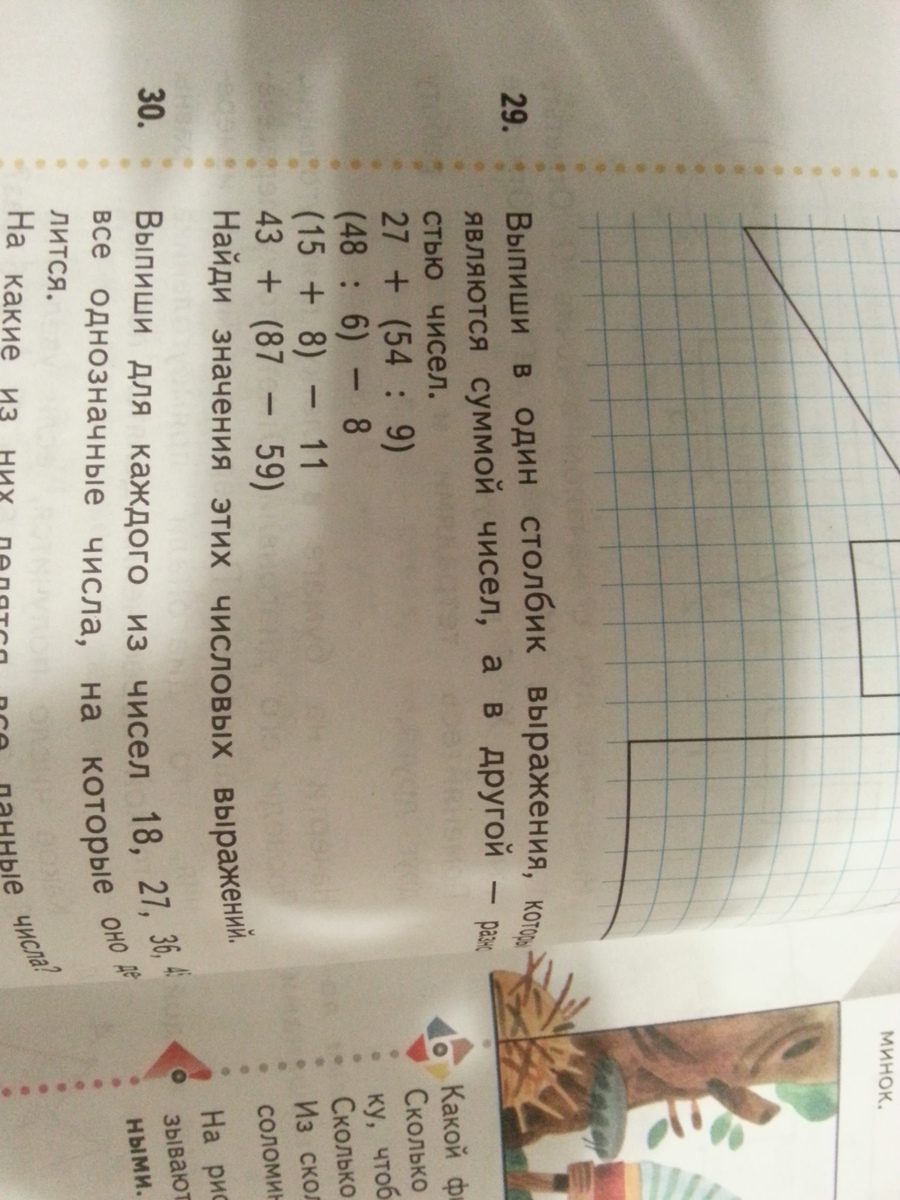 29. Выпиши в один столбик выражения, которы
являются суммой чисел, а в другой — разно
стью чисел.
27 + (54 : 9)
(48 : 6) − 8
(15 + 8) − 11
43 + (87 − 59)
Найди значения этих числовых выражений.
30. Выпиши для каждого из чисел 18, 27, 36,
все однозначные числа, на которые оно де-
лится.
На какие из них делятся все данные числа?
минок.
Какой
Сколько
ку, чтоб
Сколько
Из скол
соломин
На рис
зывают
ными.